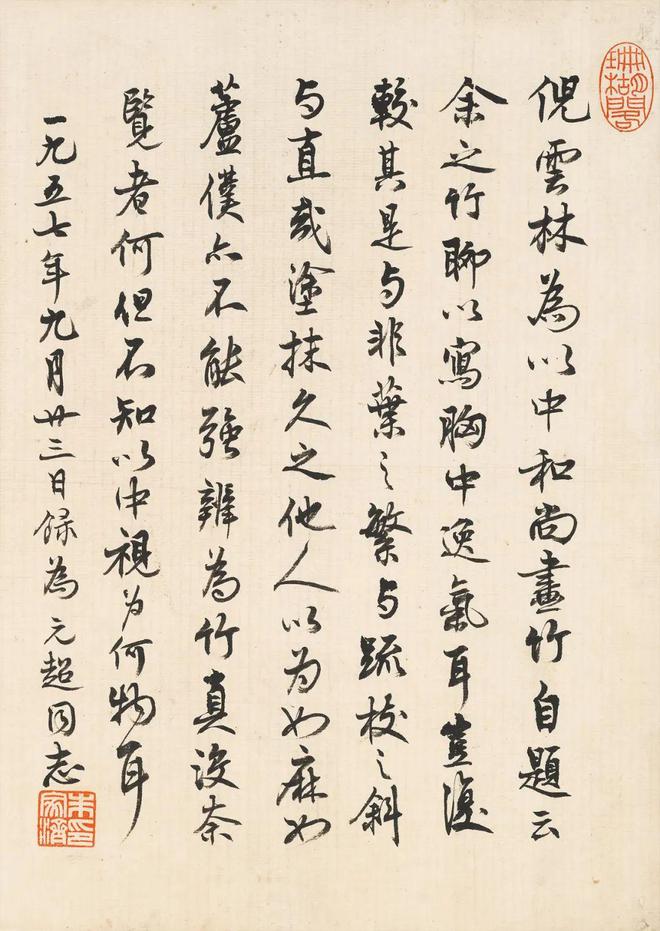 珊瑚閣
倪雲林為以中和尚畫竹自題云
余之竹聊以寫胸中逸氣耳豈復
較其是与非葉之繁与疏枝之斜
与直或塗抹久之他人以为如麻如
蘆僕亦不能強辨為竹真没奈
覽者何但不知以中視为何物耳
一九五七年九月廿三日録為元超同志
朱家濟印